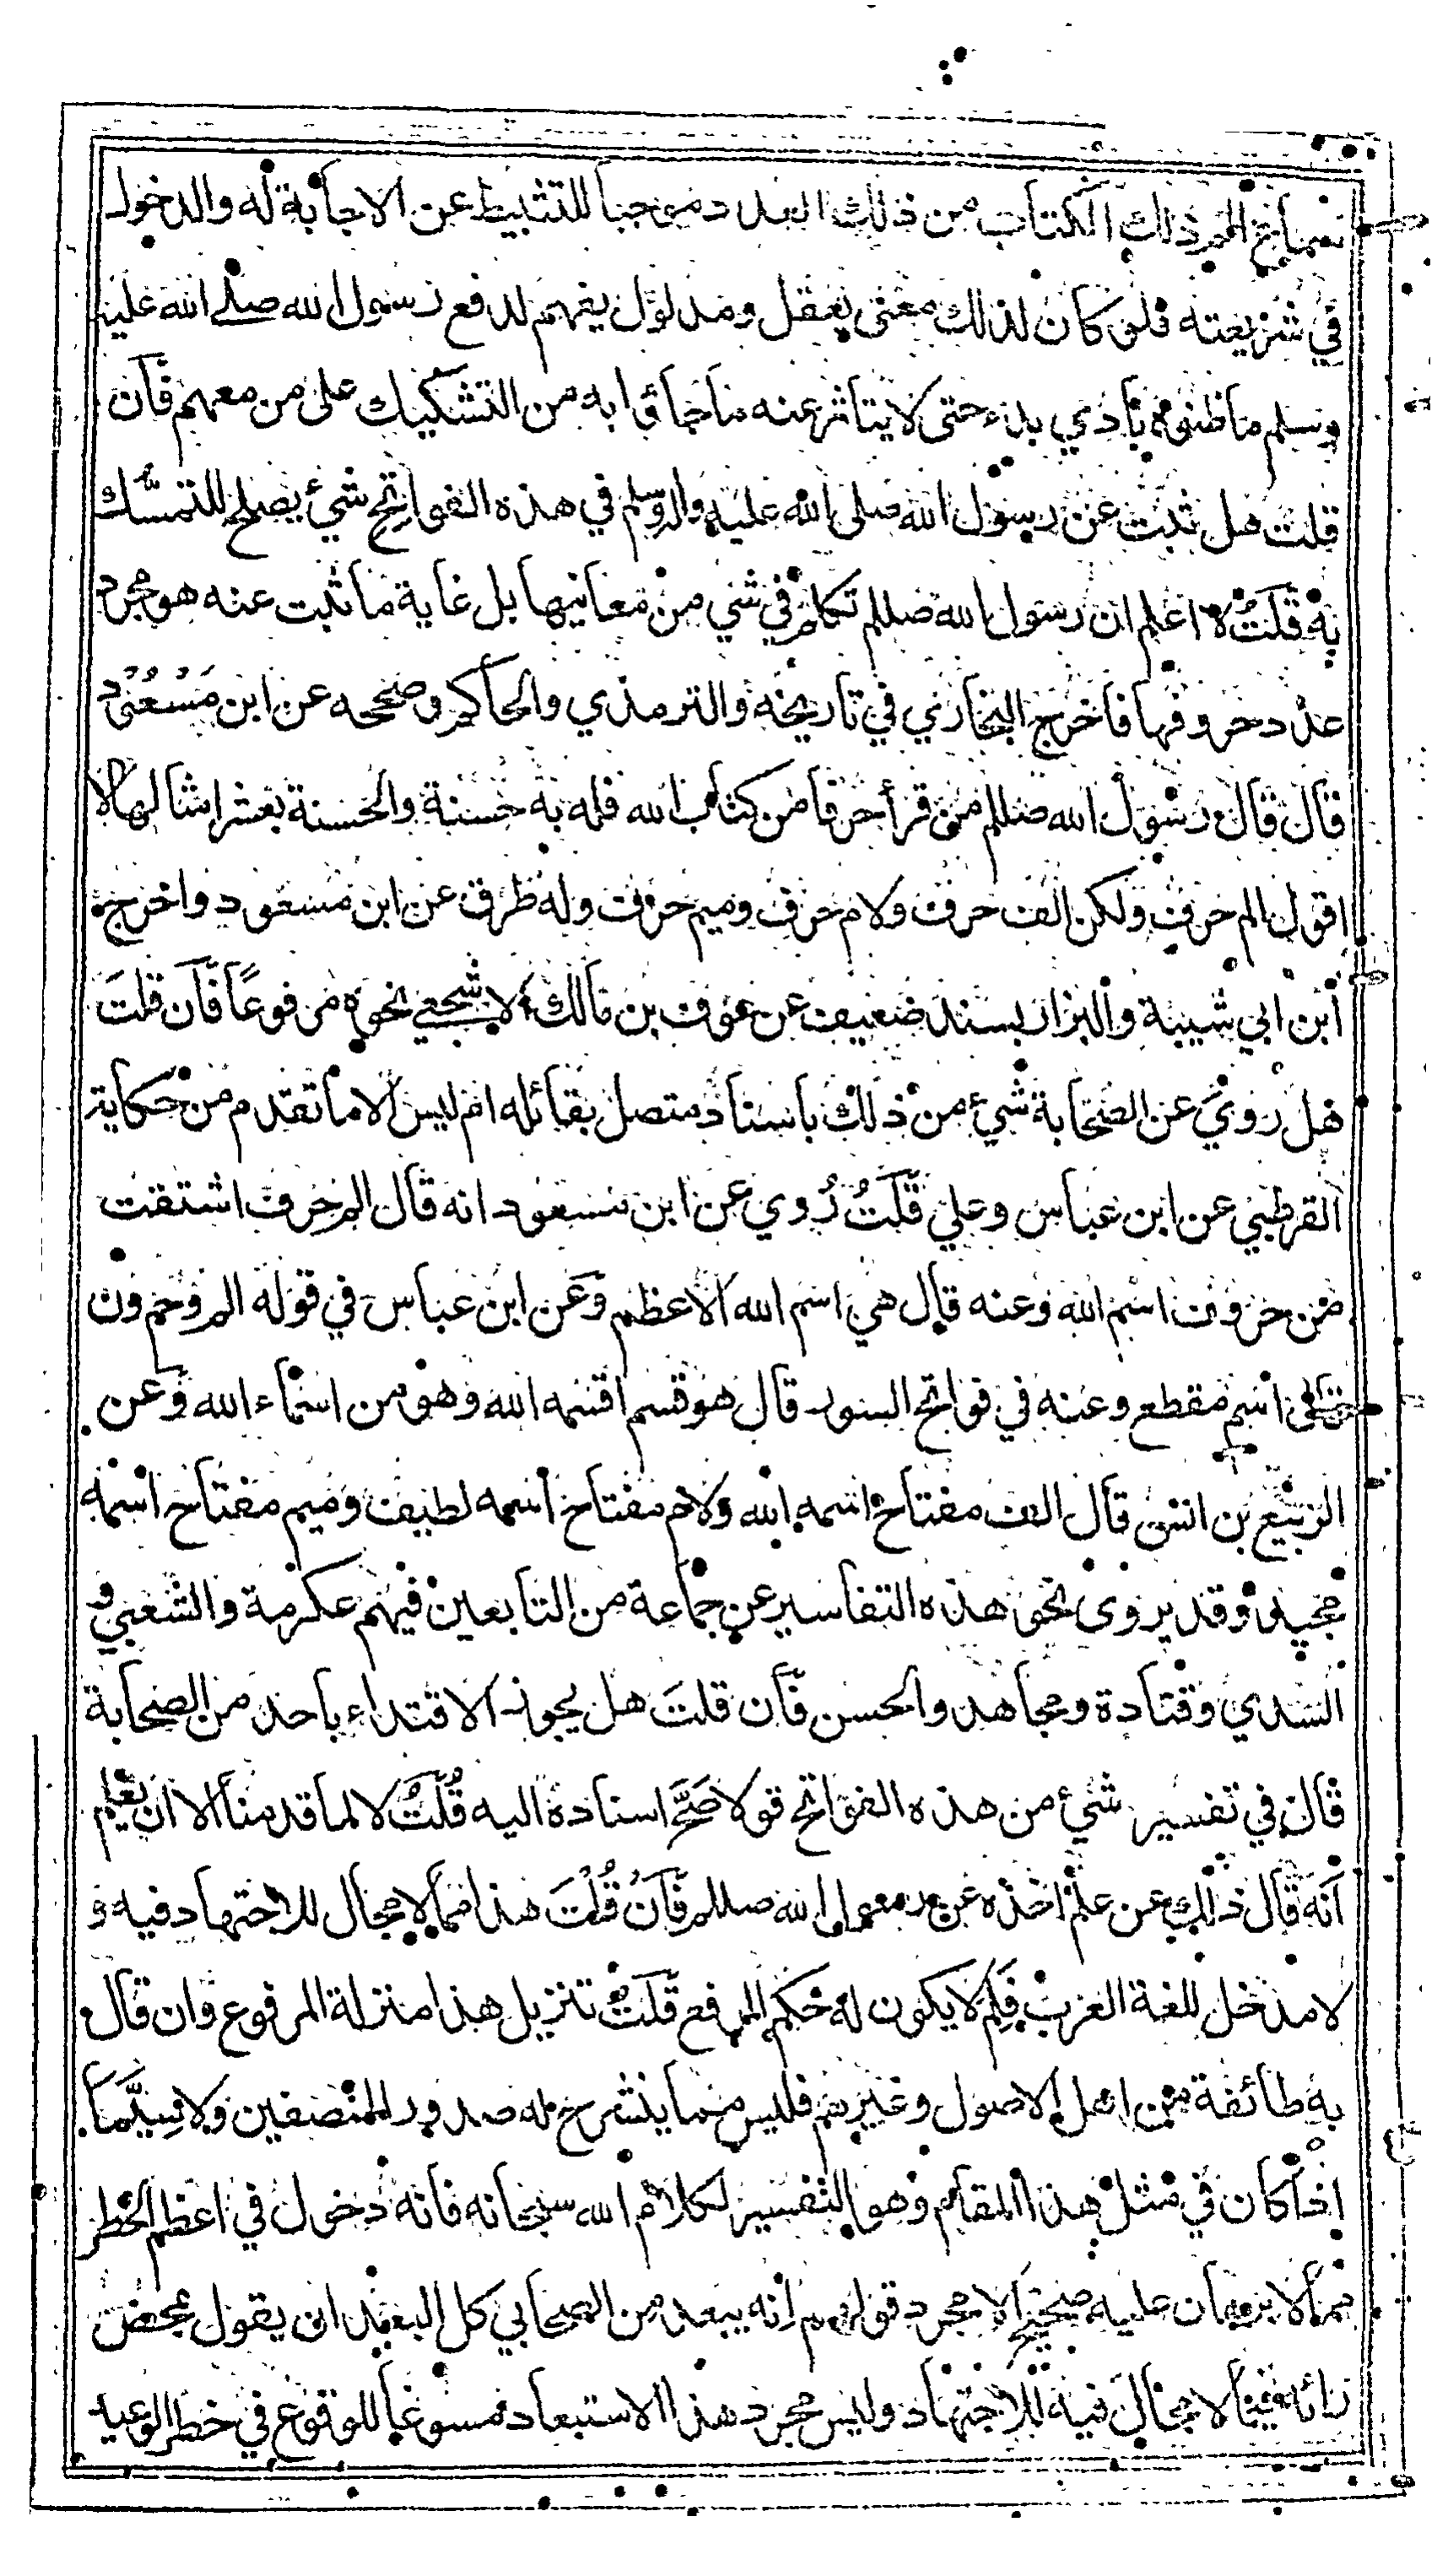 ذلك الكتاب من ذلك العدد موجبا للتثبيط عن الاجابة له والدخول
في شريعته فلو كان لذلك معنى يعقل ومدلول يفهم لدفع رسول الله صلى الله عليه
وسلم ما ظنوه بادي بدء حتى لا يتأثر عنه ما جاؤا به من التشكيك على من معهم فآن
قلت هل ثبت عن رسول الله صلى الله عليه واله وسلم في هذه الفواتح شيء يصلح للتمسك
به قلت لا اعلم ان رسول الله صللم تكلم في شي من معانيها بل غاية ما ثبت عنه هو مجرد
عدد حروفها فاخرج البخاري في تاريخه والترمذي والحاكم وصححه عن ابن مسعود
قال قال رسول الله صللم من قرأ حرفا من كتاب الله فله به حسنة والحسنة بعشر امثالها لا
اقول الم حرف ولكن الف حرف ولام حرف وميم حرف وله طرق عن ابن مسعود واخرج
أبن ابي شيبة والبزار بسند ضعيف عن عوف بن مالك الاشجعي نحوه مرفوعاً فآن قلت
هل روي عن الصحابة شيء من ذلك باسناد متصل بقائله ام ليس الا ما تقدم من حكاية
القرطبي عن ابن عباس وعلي قلت رُوي عن ابن مسعود انه قال الم حرف اشتقت
من حروف اسم الله وعنه قال هي اسم الله الاعظم وعن ابن عباس في قوله الم وحم ون
قال اسم مقطع وعنه في فواتح السور قال هو قسم اقسمه الله وهو من اسماء الله وعن
الربيع بن انس قال الف مفتاح اسمه الله ولام مفتاح اسمه لطيف وميم مفتاح اسمه
مجيد وقد يروى نحو هذه التفاسير عن جماعة من التابعين فيهم عكرمة والشعبي و
السدي وقتادة ومجاهد والحسن فآن قلت هل يجوز الاقتداء باحد من الصحابة
قال في تفسير شيء من هذه الفواتح قولا صَحَّ اسناده اليه قُلتُ لا لما قدمنا الا ان يعلم
أنه قال ذلك عن علم اخذه عن رسول الله صللم فآن قُلتَ هذا مما لا مجال للاجتهاد فيه و
لا مدخل للغة العرب فلم لا يكون له حكم الرفع قلتُ تنزيل هذا منزلة المرفوع وان قال
به طائفة من اهل الاصول وغيرهم فليس مما ينشرح له صدور المنصفين ولا سيَّما
اذا كان في مثل هذا المقام وهو التفسير لكلام الله سبحانه فانه دخول في اعظم الخطر
بما لا برهان عليه صحيح الا مجرد قولهم انه يبعد من الصحابي كل البعد ان يقول بمحض
رائه فيما لا مجال فيه للاجتهاد وليس مجرد هذا الاستبعاد مسوغا للوقوع في خطر الوعيد